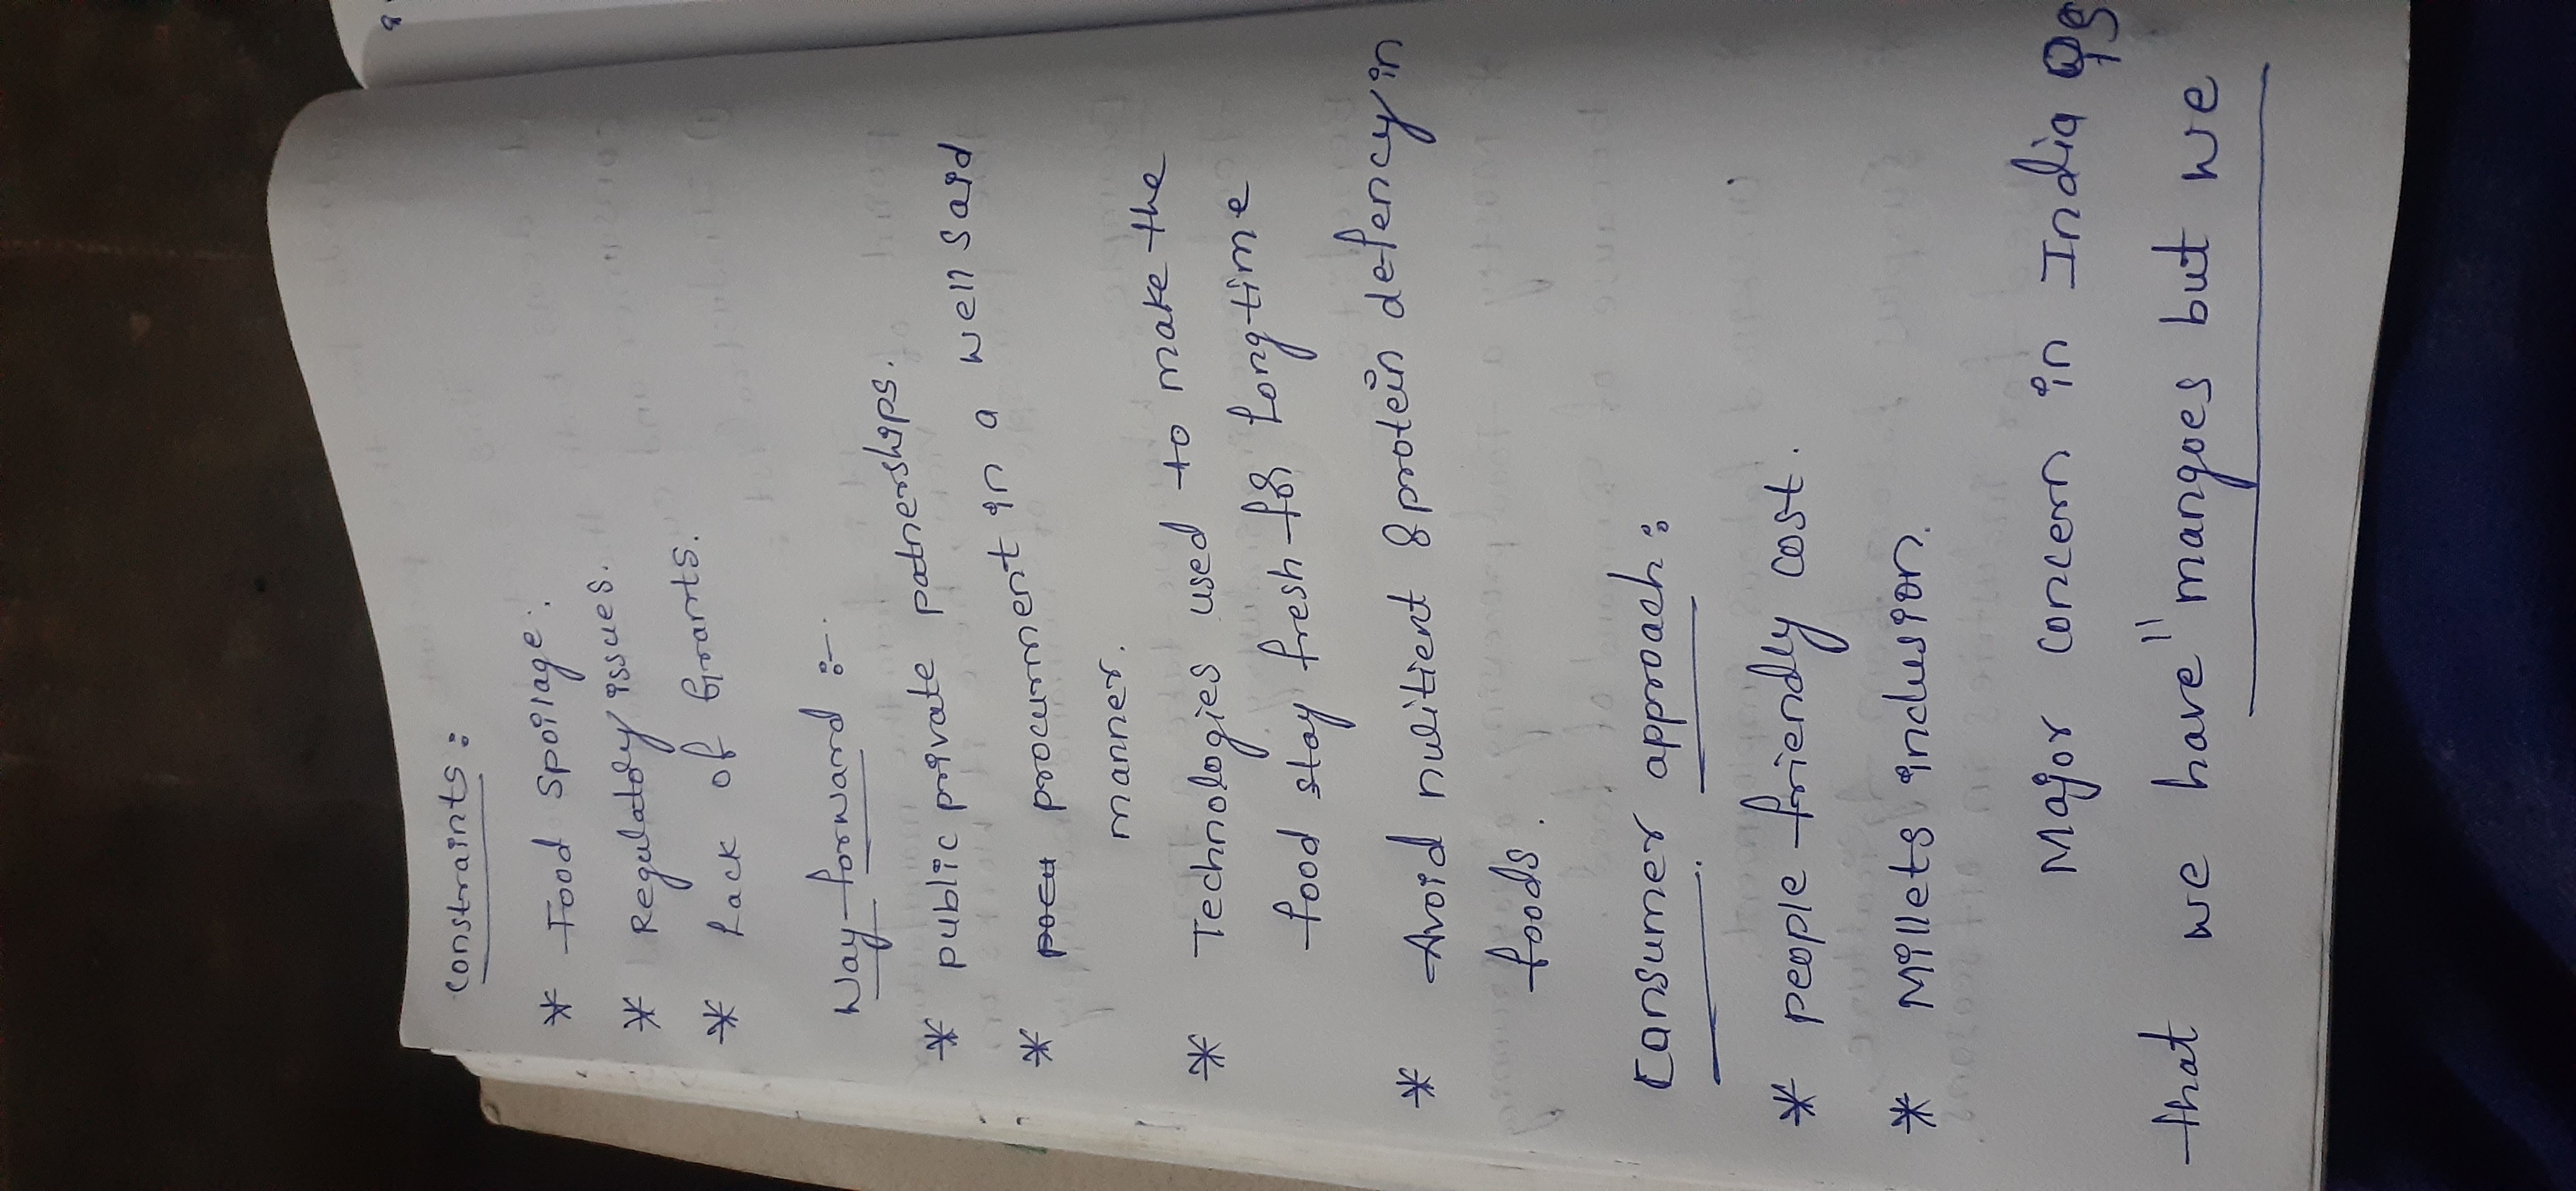 Constraints :
* Food spoilage.
* Regulatory issues.
* Lack of Grants.
Way forward :-
* public private patnerships.
* procurment in a well said
manner.
* Technologies used to make the
food stay fresh for long time
* Avoid nulitient & protein defency in
foods.
Consumer approach :
* people friendly cost.
* Millets inclusion.
Major concern in India is
that we have "mangoes but we